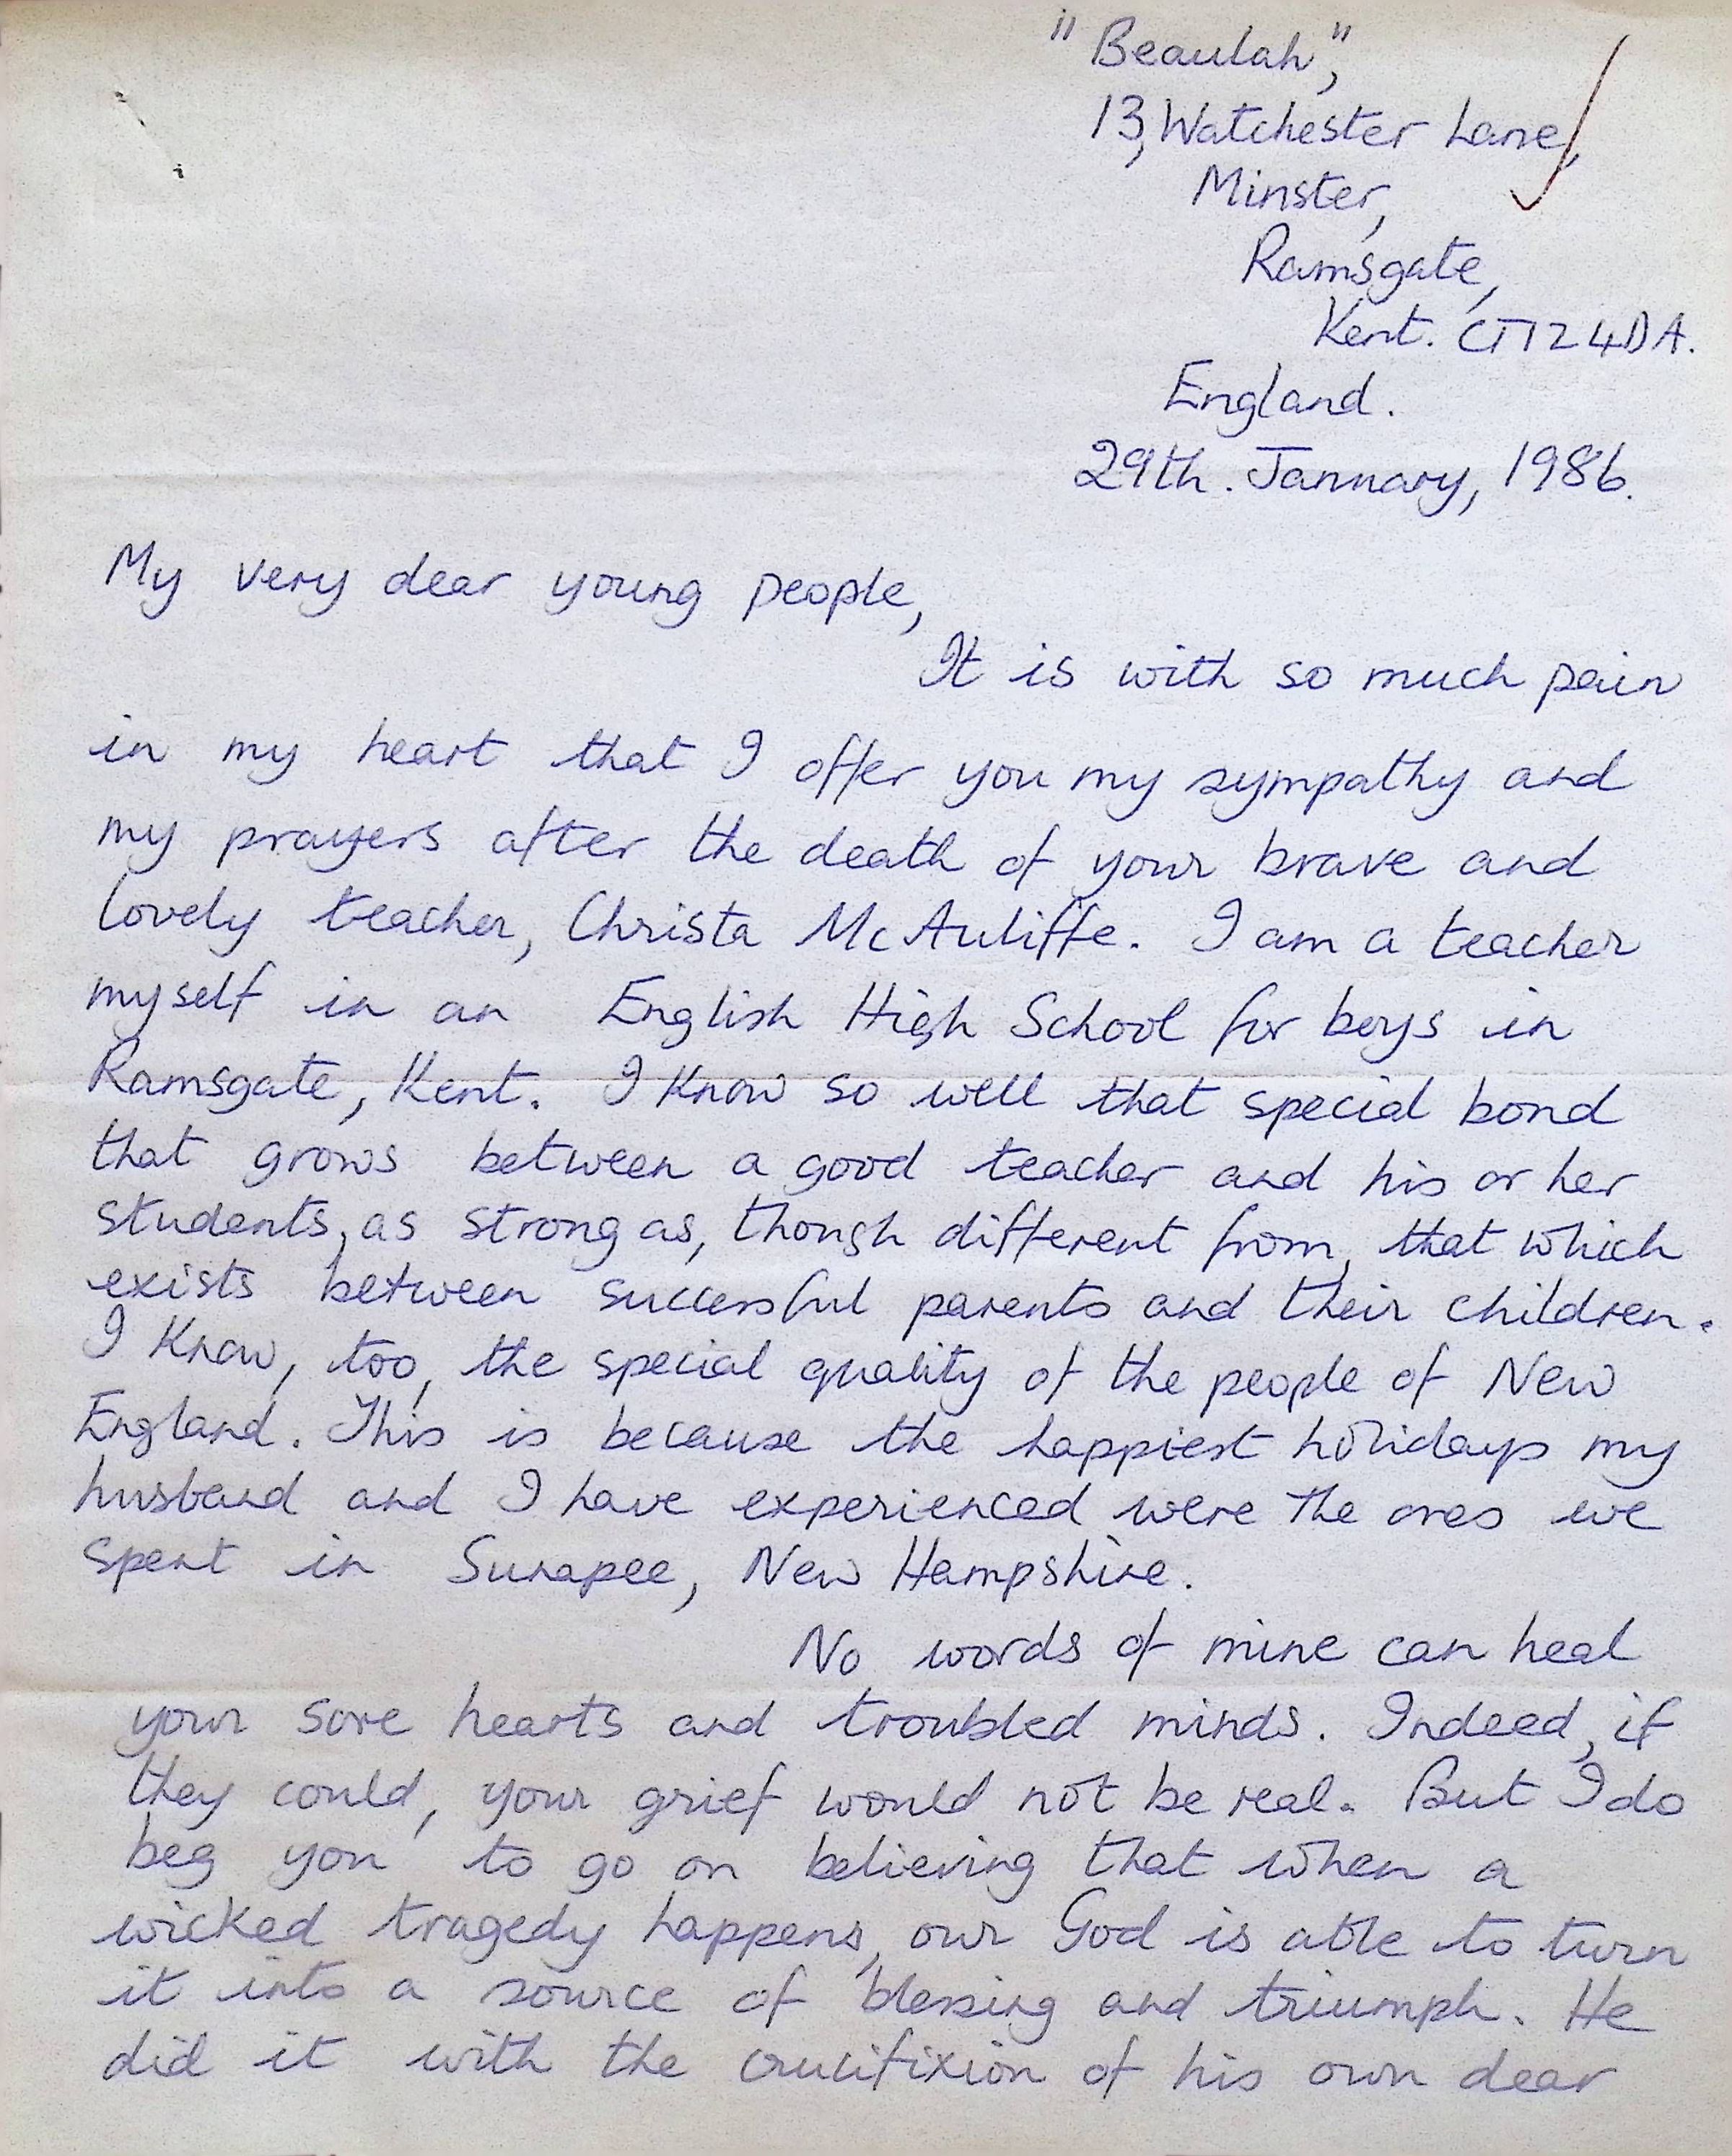 "Beaulah",
13, Watchester Lane,
Minster,
Ramsgate,
Kent. CT12 4DA.
England.
29th. January, 1986.
My very dear young people,
It is with so much pain
in my heart that I offer you my sympathy and
my prayers after the death of your brave and
lovely teacher, Christa McAuliffe. I am a teacher
myself in an English High School for boys in
Ramsgate, Kent. I know so well that special bond
that grows between a good teacher and his or her
students, as strong as, though different from, that which
exists between successful parents and their children.
I know, too, the special quality of the people of New
England. This is because the happiest holidays my
husband and I have experienced were the ones we
spent in Sunapee, New Hampshire.
No words of mine can heal
your sore hearts and troubled minds. Indeed, if
they could, your grief would not be real. But I do
beg you to go on believing that when a
wicked tragedy happens, our God is able to turn
it into a source of blessing and triumph. He
did it with the crucifixion of his own dear